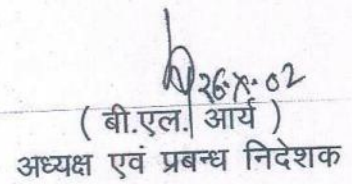 26.X.02
( बी.एल. आर्य )
अध्यक्ष एवं प्रबन्ध निदेशक